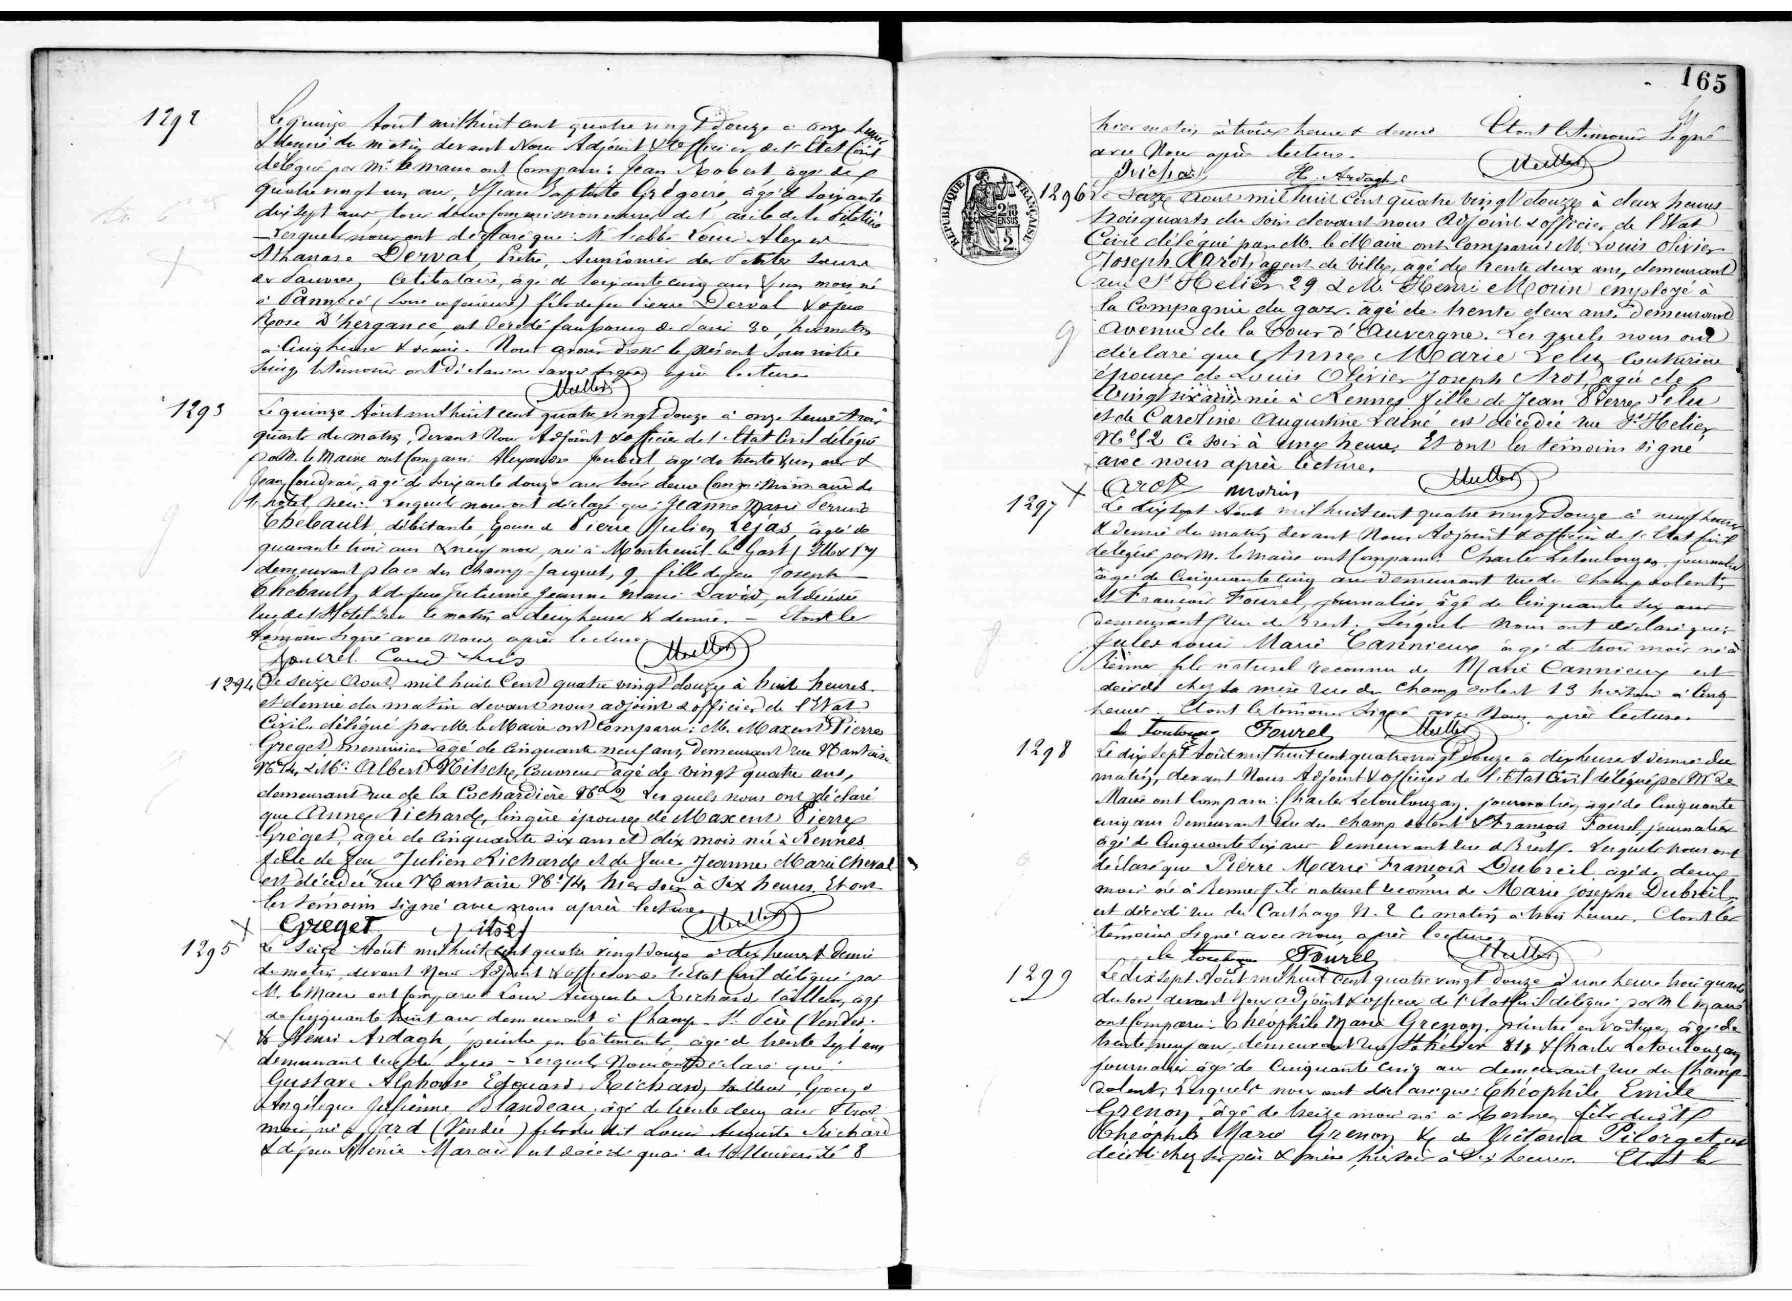 1292
Le quinze Août mil huit cent quatre vingt douze à onze heures
& demie du matin devant Nous Adjoint & officier de l'Etat Civil
délégué par Mr le maire ont Comparu : Jean Robert âgé de
quatre vingt un ans, & Jean Baptiste Grégoire, âgé de soixante
dix sept ans, tous deux commissionnaires de l'asile de la
Lesquels nous ont déclaré que : Mr l'abbé Louis Alexis
Athanase Derval, Prêtre, Aumônier des Petites Sœurs
des Pauvres, Célibataire, âgé de soixante cinq ans & un mois né
à Pannecé (Loire inférieure) fils de feu Pierre Derval & de feue
Rose D'hergance, est décédé faubourg de Paris 30, hier matin
à Cinq heures & demie. Nous avons dressé le présent sous notre
seing, les témoins ont déclaré ne savoir signer après lecture
1293
Le quinze Août mil huit cent quatre vingt douze à onze heures trois
quarts du matin, devant Nous Adjoint & officier de l'Etat Civil délégué
par M. le Maire ont Comparu Alexandre Joubert, âgé de trente & un ans &
Jean Coudrais, âgé de soixante douze ans tous deux Commissionnaires de
l'hôtel Dieu. Lesquels nous ont déclaré que : Jeanne Marie Perrine
Thébault, débitante, épouse de Pierre Julien Lejas, âgée de
quarante trois ans & neuf mois, née à Montreuil le Gast (Ille & V)
demeurant place du Champ-Jacquet, 9, fille de feu Joseph
Thebault, & de feue Julienne Jeanne Marie David, est décédée
rue de l'Hôtel Dieu le matin à deux heures & demie. – Et ont les
témoins signé avec Nous, après lecture
1294
Le seize Aout, mil huit Cent quatre vingt douze à huit heures
et demie du matin devant nous adjoint & officier de l'Etat
Civil délégué par M. le Maire ont Comparu : M. Maxent Pierre
Greget menuisier âgé de Cinquante neuf ans, demeurant rue Nantaise
No 14, & Mr. Albert Nitsche, Couvreur âgé de vingt quatre ans,
demeurant rue de la Cochardière No 2 Les quels nous ont déclaré
que Anne Richard, lingère épouse de Maxent Pierre
Gréget, agée de Cinquante six ans et dix mois née à Rennes
fille de feu Julien Richard et de feue Jeanne Marie Cheval
est décédée rue Nantaise No 14, hier soir à six heures. Et ont
les témoins signé avec nous après lecture.
Greget
1295
Le seize Août mil huit cent quatre vingt douze à dix heures & demie
du matin, devant Nous Adjoint & officier de l'Etat Civil délégué par
M. le Maire ont Comparu Louis Auguste Richard, tailleur, âgé
de Cinquante huit ans demeurant à Champ-St. Père (Vendée)
& Henri Ardagh, peintre en bâtiments, âgé de trente sept ans
demeurant rue du Lycée – Lesquels Nous ont déclaré que :
Gustave Alphonse Edouard Richard, tailleur, époux de
Angélique Julienne Blandeau, âgé de trente deux ans & trois
mois, né à Jard (Vendée) fils du dit Louis Auguste Richard
& de feue Marau est décédé quai de l'Université 8
165
hier matin à trois heures & demie Et ont les témoins signé
avec Nous après lecture.
Richard H. Ardagh
RÉPUBLIQUE FRANÇAISE
1296
Le Seize Aout mil huit Cent quatre vingt douze à deux heures
trois quarts du soir devant nous Adjoint & officier de l'Etat
Civil délégué par M. le Maire ont Comparu M. Louis Olivier
Joseph Arot, agent de Ville, âgé de trente deux ans, demeurant
rue St Helier 29 & M. Henri Morin employé à
la Compagnie du gaz. âgé de trente deux ans, demeurant
Avenue de la Tour d'Auvergne. Les quels nous ont
déclaré que Anne Marie Lelu Couturière
épouse de Louis Olivier Joseph Arot, agée de
Vingt six ans née à Rennes fille de Jean Pierre Lelu
et de Caroline Augustine Lainé est décédée rue St Helier
ce soir à une heure. Et ont les témoins signé
avec nous après lecture.
Arot Morin
1297
Le dix sept Août mil huit cent quatre vingt douze à neuf heures
& demie du matin, devant Nous Adjoint & officier de l'Etat Civil
délégué par M. le Maire ont Comparu Charles Letoulouzan, journalier
âgé de Cinquante cinq ans demeurant rue du Champ dolent,
& François Fourel, journalier, âgé de Cinquante six ans
demeurant rue de Brest. Lesquels Nous ont déclaré que :
Jules Louis Marie Cannieux, âgé de trois mois né à
Rennes fils naturel reconnu de Marie Cannieux est
décédé chez sa mère rue du Champ dolent 13 hier soir à Cinq
heures. Et ont les témoins signé avec Nous, après lecture
Fourel
1298
Le dix sept Août mil huit cent quatre vingt douze à dix heures & demie du
matin, devant Nous Adjoint & officier de l'Etat Civil délégué par M. le
Maire ont Comparu : Charles Letoulouzan, journalier, âgé de Cinquante
cinq ans demeurant Rue du Champ dolent & François Fourel, journalier
âgé de Cinquante Six ans demeurant rue de Brest. Lesquels nous ont
déclaré que Pierre Marie François Dubreil, âgé de deux
mois né à Rennes fils naturel reconnu de Marie Josephe Dubreil,
est décédé rue de Carthage N. 2 Ce matin à trois heures. Et ont les
témoins signé avec nous après lecture
Fourel
1299
Le dix sept Août mil huit cent quatre vingt douze à une heure trois quarts
du soir devant Nous adjoint & officier de l'Etat Civil délégué par M le Maire
ont Comparu : Théophile Marie Grenon, peintre en voitures, âgé de
trente neuf ans, demeurant rue St Hélier 81, & Charles Letoulouzan
journalier âgé de Cinquante Cinq ans demeurant rue du Champ-
dolent, Lesquels nous ont déclaré que : Théophile Emile
Grenon, âgé de treize mois né à Rennes, fils du dit
Théophile Marie Grenon, & de Victoria Pilorget, est
décédé chez ses père & mère, hier soir à Six heures. Et ont les